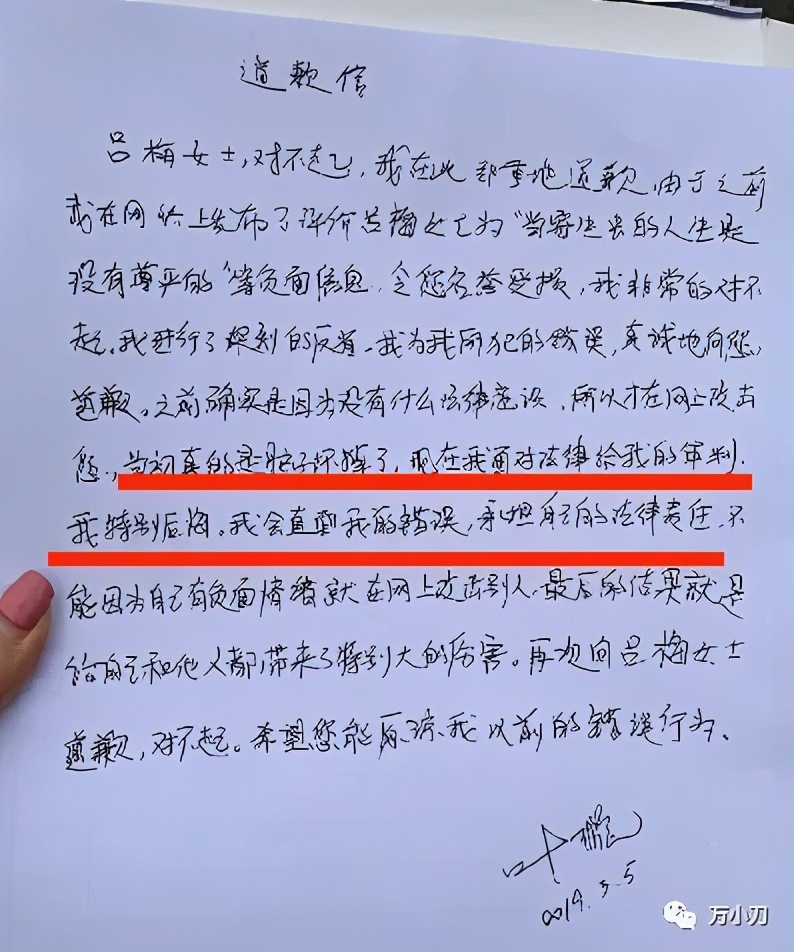 道歉信
吕梅女士,对不起,我在此郑重地道歉,由于之前
我在网络上发布了评价吕梅女士为“当寄生虫的人生是
没有尊严的”等负面信息,令您名誉受损,我非常的对不
起。我进行了深刻的反省。我为我所犯的错误,真诚地向您
道歉。之前确实是因为没有什么法律意识,所以才在网上攻击
您,当初真的是脑子坏掉了,现在我面对法律给我的审判.
我特别后悔。我会直面我的错误,承担自己的法律责任,不
能因为自己有负面情绪就在网上攻击别人,最后的结果就是
给自己和他人都带来了特别大的伤害。再次向吕梅女士
道歉,对不起。希望您能原谅我以前的错误行为、
叶
2019.3.5
万小刀